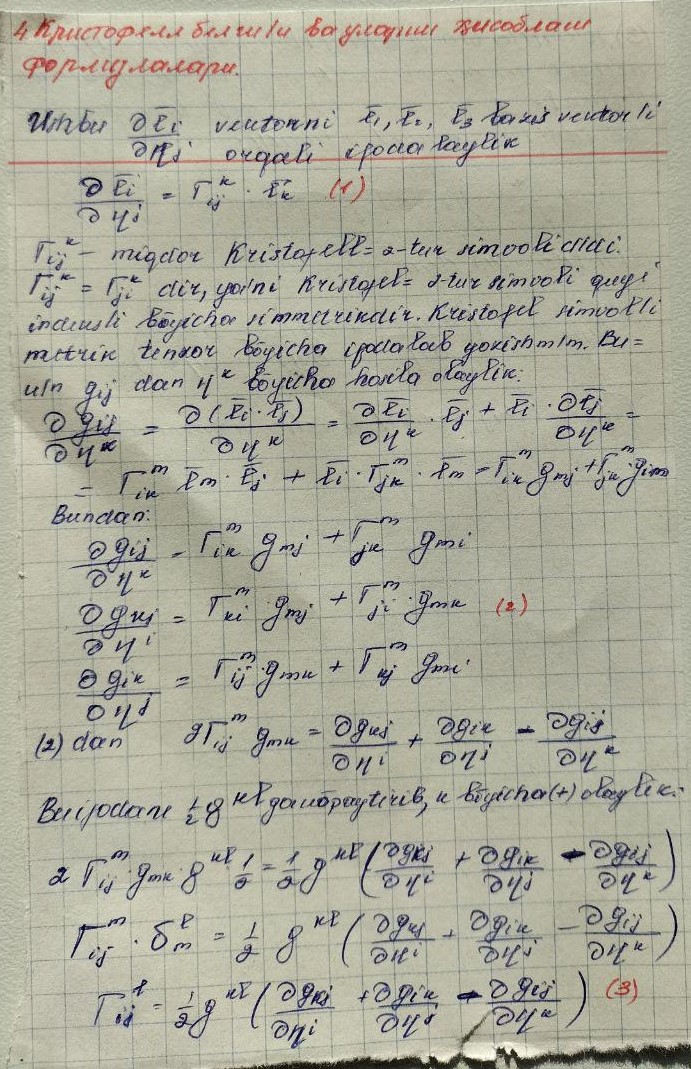 4 Кристофелл белгиси ва уларни ҳисоблаш
формулалари.
Ushbu ∂ēi/∂ηj vektorni ē1, ē2, ē3 bazis vektorli
orqali ifodalaylik
∂ēi/∂ηj = Γij^k · ēk (1)
Γij^k – miqdor Kristofell= 2-tur simvolidi.
Γij^k = Γji^k dir, ya'ni Kristofel= 2-tur simvoli quyi
indeksli bõyicha simmetrikdir. Kristofel simvolli
metrik tenzor bõyicha ifodalab yoxishm/m. Bu=
u/n gij dan η^k bõyicha hosila olaylik:
∂gij/∂η^k = ∂(ēi·ēj)/∂η^k = ∂ēi/∂η^k · ēj + ēi · ∂ēj/∂η^k =
= Γik^m ēm·ēj + ēi·Γjk^m·ēm = Γik^m gmj + Γjk^m gim
Bundan:
∂gij/∂η^k = Γik^m gmj + Γjk^m gmi
∂gkj/∂η^i = Γki^m gmj + Γji^m·gmk (2)
∂gik/∂η^j = Γij^m·gmk + Γkj^m gmi
(2) dan 2Γij^m gmk = ∂gkj/∂η^i + ∂gik/∂η^j − ∂gij/∂η^k
Bu ifodani 1/2 g^kℓ ga kõpaytirib, k bõyicha (+) olaylik:
2 Γij^m gmk·g^kℓ·1/2 = 1/2 g^kℓ (∂gkj/∂η^i + ∂gik/∂η^j − ∂gij/∂η^k)
Γij^m · δm^ℓ = 1/2 g^kℓ (∂gkj/∂η^i + ∂gik/∂η^j − ∂gij/∂η^k)
Γij^ℓ = 1/2 g^kℓ (∂gkj/∂η^i + ∂gik/∂η^j − ∂gij/∂η^k) (3)